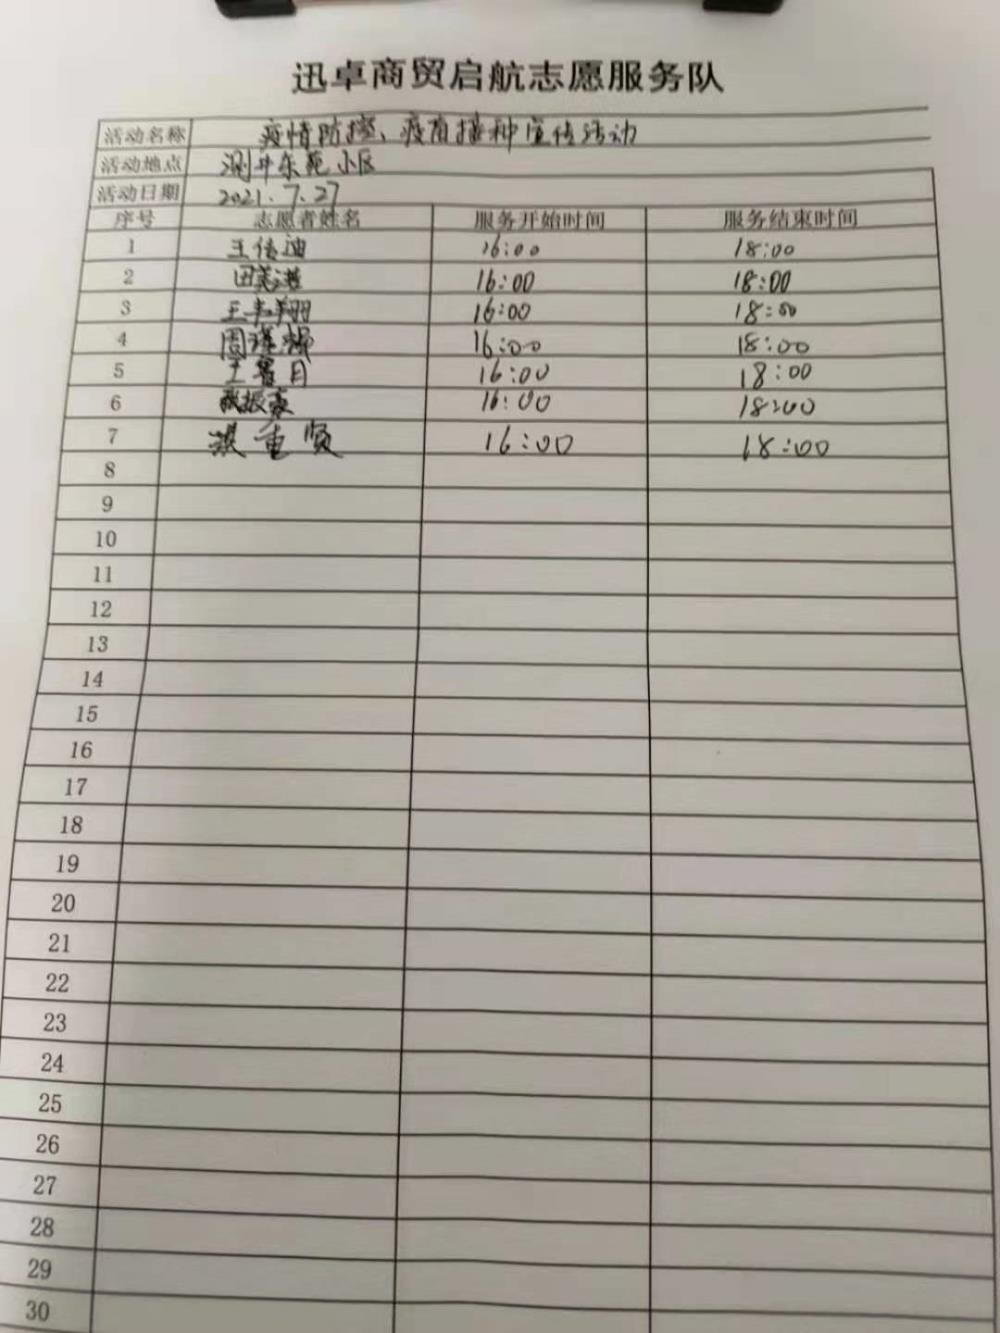 迅卓商贸启航志愿服务队
活动名称 疫情防控、疫苗接种宣传活动
活动地点 涧井东苑小区
活动日期 2021.7.27
序号 志愿者姓名 服务开始时间 服务结束时间
1 王传迪 16:00 18:00
2 田 16:00 18:00
3 王 翔 16:00 18:00
4 周 16:00 18:00
5 王 16:00 18:00
6 振豪 16:00 18:00
7 重贤 16:00 18:00
8
9
10
11
12
13
14
15
16
17
18
19
20
21
22
23
24
25
26
27
28
29
30